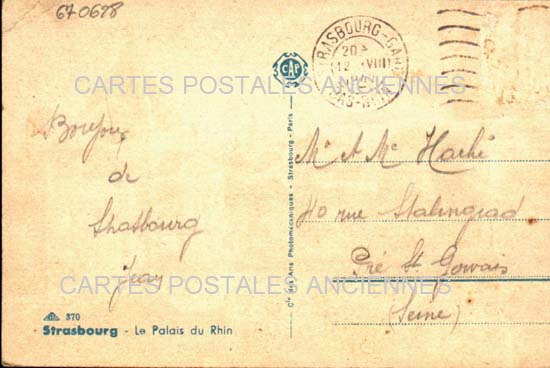 670678
CAP
STRASBOURG-GARE
20
12 VIII
BAS-RHIN
CARTES POSTALES ANCIENNES
Bonjour
de
Strasbourg
Mr et Me Haché
40 rue Stalingrad
Pré St Gervais
(Seine)
Cie des Arts Photomécaniques - Strasbourg - Paris
CARTES POSTALES ANCIENNES
370
Strasbourg - Le Palais du Rhin